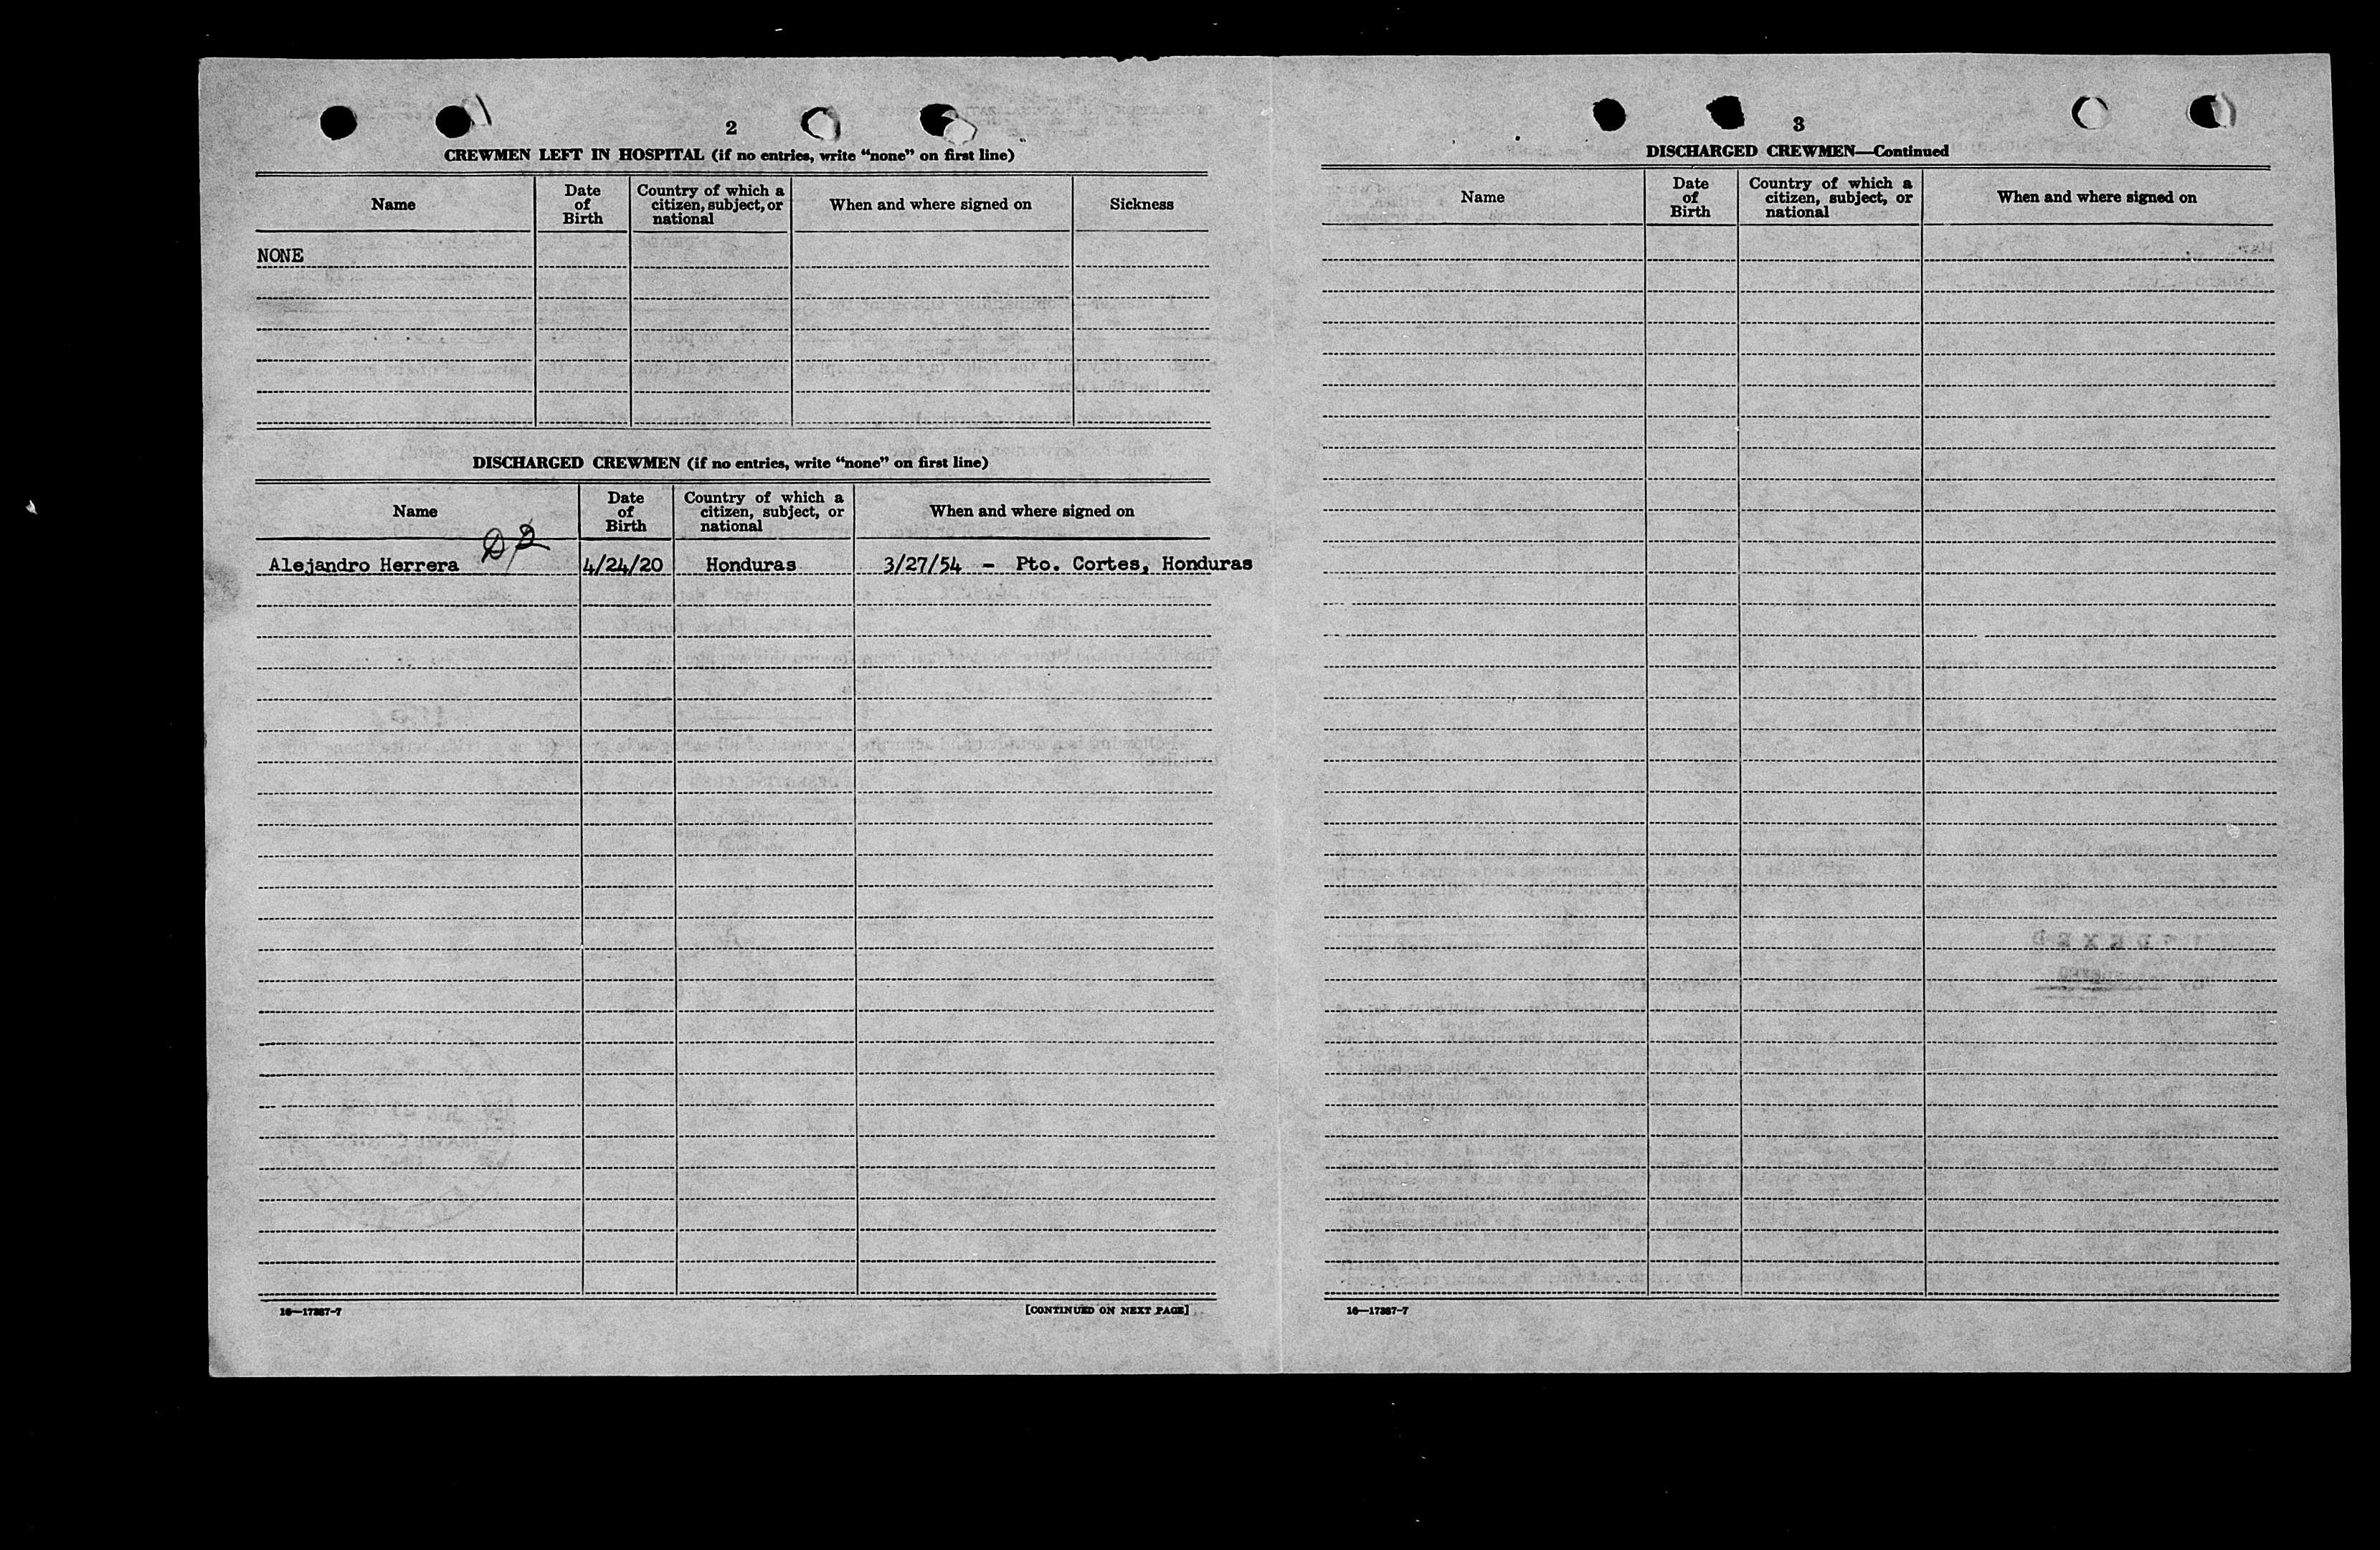 2
CREWMEN LEFT IN HOSPITAL (if no entries, write "none" on first line)
Name
Date of Birth
Country of which a citizen, subject, or national
When and where signed on
Sickness
NONE
DISCHARGED CREWMEN (if no entries, write "none" on first line)
Name
Date of Birth
Country of which a citizen, subject, or national
When and where signed on
Alejandro Herrera 4/24/20 Honduras 3/27/54 - Pto. Cortes, Honduras
16—17387-7
[CONTINUED ON NEXT PAGE]
3
DISCHARGED CREWMEN—Continued
Name
Date of Birth
Country of which a citizen, subject, or national
When and where signed on
16—17387-7